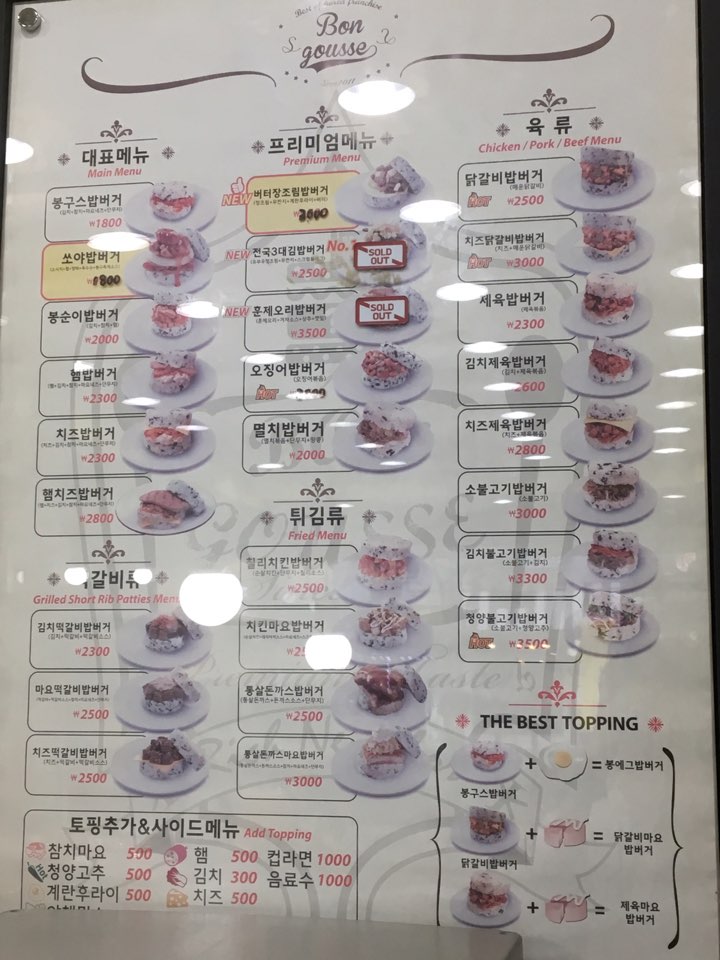 Best of korea franchise
Bon
gousse
대표메뉴
Main Menu
봉구스밥버거
₩1800
쏘야밥버거
봉순이밥버거
(김치+참치+햄)
₩2000
햄밥버거
₩2300
치즈밥버거
₩2300
햄치즈밥버거
₩2800
떡갈비류
Grilled Short Rib Patties Menu
김치떡갈비밥버거
(김치+떡갈비+떡갈비소스)
₩2300
마요떡갈비밥버거
₩2500
치즈떡갈비밥버거
(치즈+떡갈비+떡갈비소스)
₩2500
프리미엄메뉴
Premium Menu
NEW
버터장조림밥버거
NEW
전국3대김밥버거
No.
₩2500
SOLD
OUT
NEW
훈제오리밥버거
₩3500
SOLD
OUT
오징어밥버거
(오징어볶음)
HOT
멸치밥버거
(멸치볶음+단무지+땅콩)
₩2000
튀김류
Fried Menu
칠리치킨밥버거
₩2500
치킨마요밥버거
통살돈까스밥버거
(통살돈까스+돈까스소스+단무지)
₩2500
통살돈까스마요밥버거
₩3000
육 류
Chicken / Pork / Beef Menu
닭갈비밥버거
(매운닭갈비)
HOT ₩2500
치즈닭갈비밥버거
(치즈+매운닭갈비)
HOT ₩3000
제육밥버거
(제육볶음)
₩2300
김치제육밥버거
(김치+제육볶음)
2600
치즈제육밥버거
(치즈+제육볶음)
₩2800
소불고기밥버거
(소불고기)
₩3000
김치불고기밥버거
(소불고기+김치)
₩3300
청양불고기밥버거
(소불고기+청양고추)
HOT ₩3500
THE BEST TOPPING
+ = 봉에그밥버거
봉구스밥버거
+ = 닭갈비마요
밥버거
닭갈비밥버거
+ = 제육마요
밥버거
토핑추가&사이드메뉴 Add Topping
참치마요 500 햄 500 컵라면 1000
청양고추 500 김치 300 음료수 1000
계란후라이 500 치즈 500